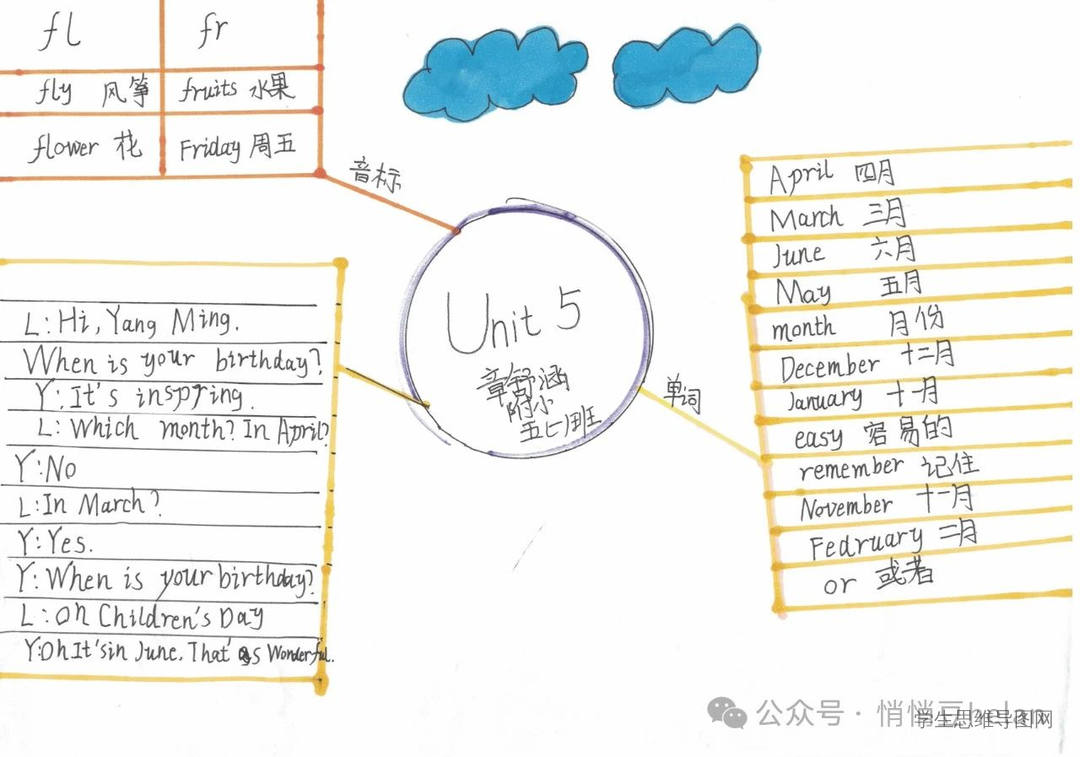 fl fr
fly 风筝 fruits 水果
flower 花 Friday 周五
音标
L: Hi, Yang Ming.
When is your birthday?
Y: It's inspring.
L: Which month? In April?
Y: No
L: In March?
Y: Yes.
Y: When is your birthday?
L: On Children's Day
Y: Oh It's in June. That's Wonderful.
Unit 5
章舒涵
附小
单词
April 四月
March 三月
June 六月
May 五月
month 月份
December 十二月
January 十一月
easy 容易的
remember 记住
November 十一月
Fedruary 二月
or 或者
公众号 · 悄悄
学生思维导图网